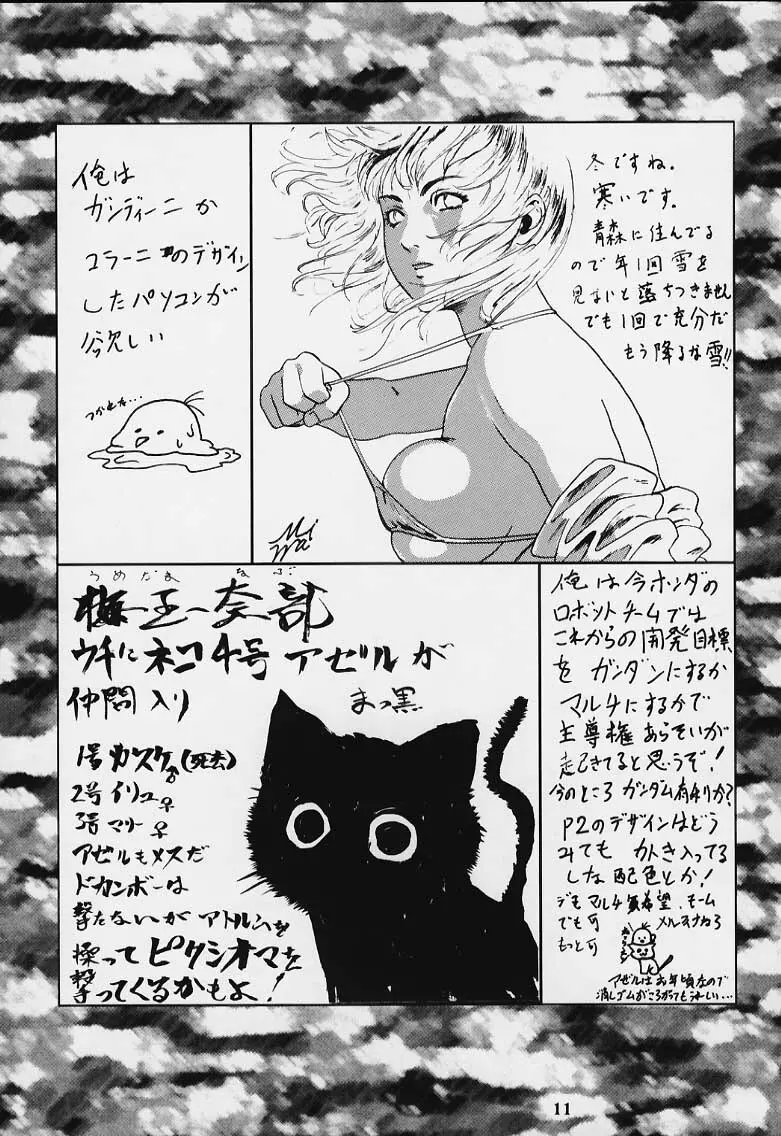 冬ですね。
寒いです。
青森に住んでる
ので年1回雪を
見ないと落ちつきません
でも1回で充分だ
もう降るな雪!!
俺は
ガンディーニか
コラーニのデザイン
したパソコンが
欲しい
つかれた…
うめだま なぶ
梅玉奈部
ウチにネコ4号アゼルが
仲間入り
まっ黒
1号カスケ♂(死去)
2号イリュ♀
3号マリー♀
アゼルもメスだ
ドカンボーは
撃たないがアトルムを
操ってピクシオマを
撃ってくるかもよ!
俺は今ホンダの
ロボットチームでは
これからの開発目標
をガンダンにするか
マルチにするかで
主導権あらそいが
起きてると思うぞ!
今のところガンダム有利か?
P2のデザインはどう
みても 入ってる
しな配色とか!
デモマルチ 希望、モーム
でも可
もっと可
アゼルはお年頃なので
消しゴムがころがってもうれしい…
11